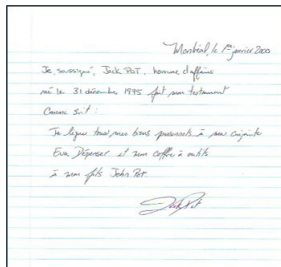 Montréal, le 1er janvier 2000
Je, soussigné, Jack Pot, homme d'affaires
né le 31 décembre 1975 fait mon testament
Comme suit :
Je lègue tous mes biens présents à ma conjointe
Eva Dépenser et mon coffre à outils
à mon fils John Pot
Jack Pot